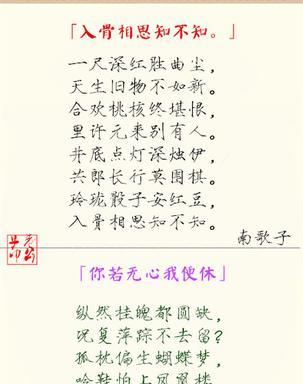 「入骨相思知不知。」
一尺深红胜曲尘，
天生旧物不如新。
合欢桃核终堪恨，
里许元来别有人。
井底点灯深烛伊，
共郎长行莫围棋。
玲珑骰子安红豆，
入骨相思知不知。
南歌子
「你若无心我便休」
纵然挂魄都圆缺，
况复萍踪不去留？
孤枕偏生蝴蝶梦，